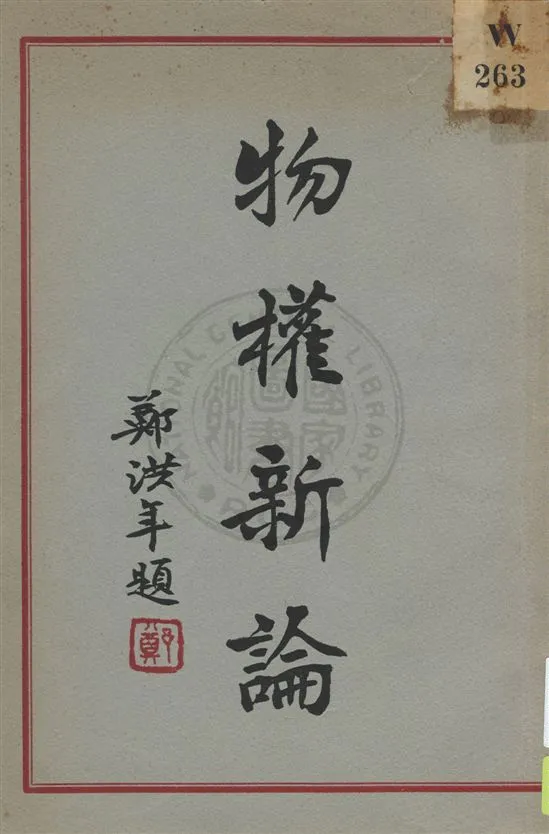 W
263
物權新論
鄭洪年題
鄭
NATIONAL CENTRAL LIBRARY
國家圖書館